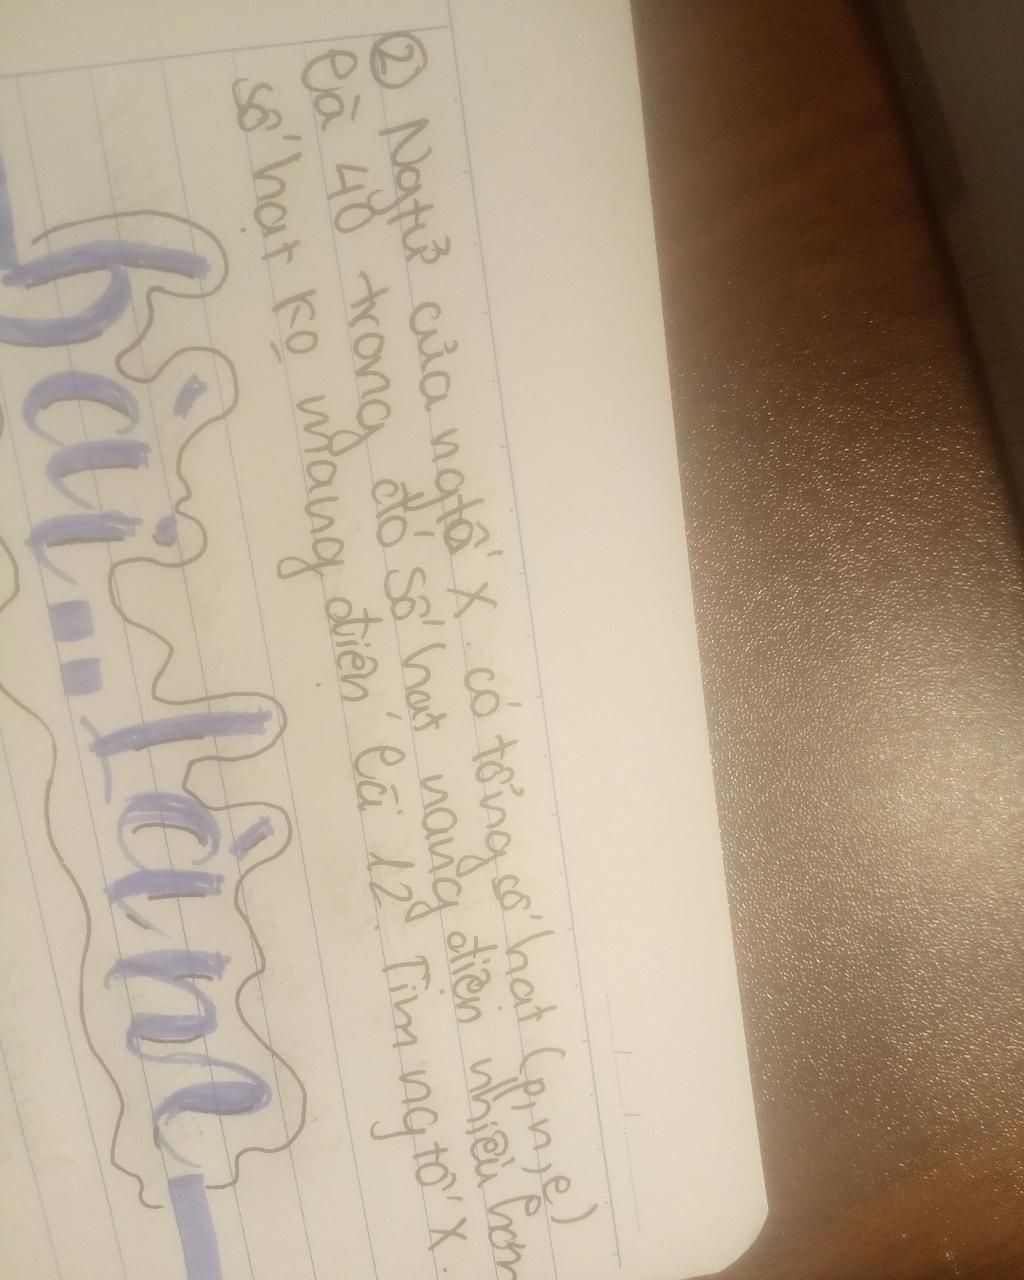 ② Ngtử của ngtố X. có tổng số hạt (p,n,e)
là 40 trong đó số hạt mang điện nhiều hơn
số hạt ko mang điện là 12. Tìm ngtố X.
Bài làm